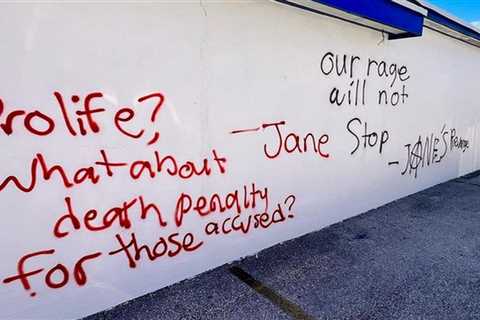 Prolife?
what about
death penalty
for those accused?
-Jane
our rage
will not
Stop
-JANE'S Revenge